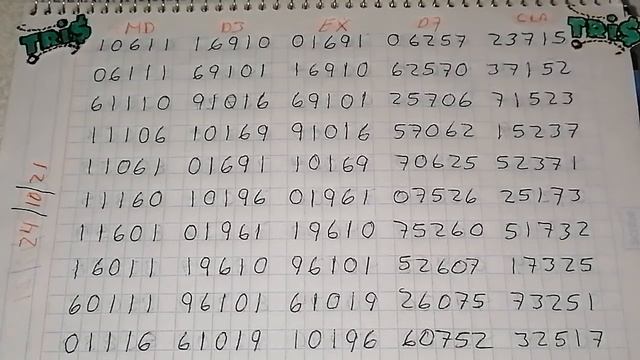 TRIS MD D3 EX D7 CLA TRIS
10611 16910 01691 06257 23715
06111 69101 16910 62570 37152
61110 91016 69101 25706 71523
11106 10169 91016 57062 15237
11061 01691 10169 70625 52371
11160 10196 01961 07526 25173
11601 01961 19610 75260 51732
16011 19610 96101 52607 17325
60111 96101 61019 26075 73251
01116 61019 10196 60752 32517
24/10/21